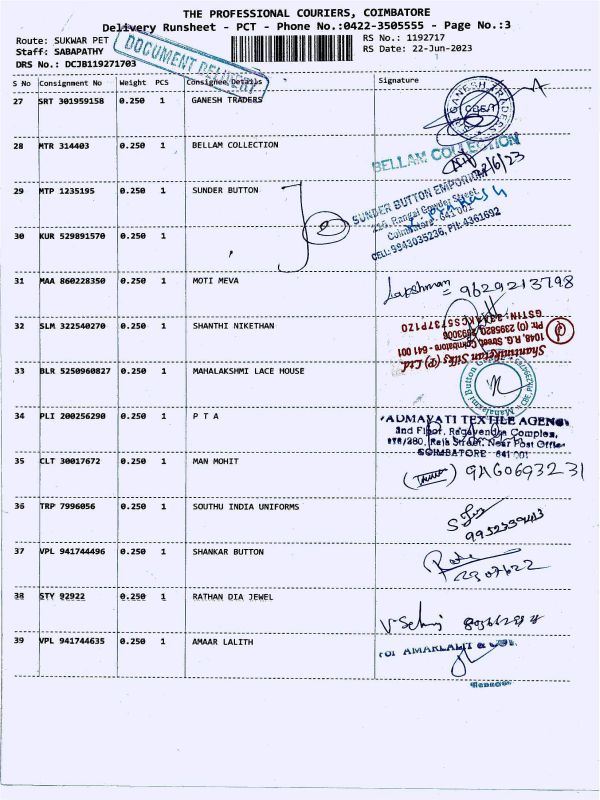 THE PROFESSIONAL COURIERS, COIMBATORE
Delivery Runsheet - PCT - Phone No.:0422-3505555 - Page No.:3
Route: SUKWAR PET
RS No.: 1192717
Staff: SABAPATHY
RS Date: 22-Jun-2023
DRS No.: DCJB119271703
DOCUMENT DELIVERY
S No Consignment No Weight PCS Consignee Details Signature
27 SRT 301959158 0.250 1 GANESH TRADERS
GANESH TRADERS
28 MTR 314403 0.250 1 BELLAM COLLECTION
BELLAM COLLECTION
29 MTP 1235195 0.250 1 SUNDER BUTTON
SUNDER BUTTON EMPORIUM
Rangai Gowder Street,
Coimbatore - 641 001
CELL: 9943035236, PH: 4361692
30 KUR 529891570 0.250 1
31 MAA 860228350 0.250 1 MOTI MEVA
Lakshman
9629213798
32 SLM 322540270 0.250 1 SHANTHI NIKETHAN
Shanthiniketan Silks (P) Ltd
1048, R.G. Street, Coimbatore - 641 001
33 BLR 5250960827 0.250 1 MAHALAKSHMI LACE HOUSE
34 PLI 200256290 0.250 1 P T A
PADMAVATI TEXTILE AGENCY
2nd Floor, Ragavendra Complex,
Raja Street, Near Post Office
COIMBATORE - 641 001
35 CLT 30017672 0.250 1 MAN MOHIT
36 TRP 7996056 0.250 1 SOUTHU INDIA UNIFORMS
37 VPL 941744496 0.250 1 SHANKAR BUTTON
38 STY 92922 0.250 1 RATHAN DIA JEWEL
39 VPL 941744635 0.250 1 AMAAR LALITH
For AMARLALIT & CO.